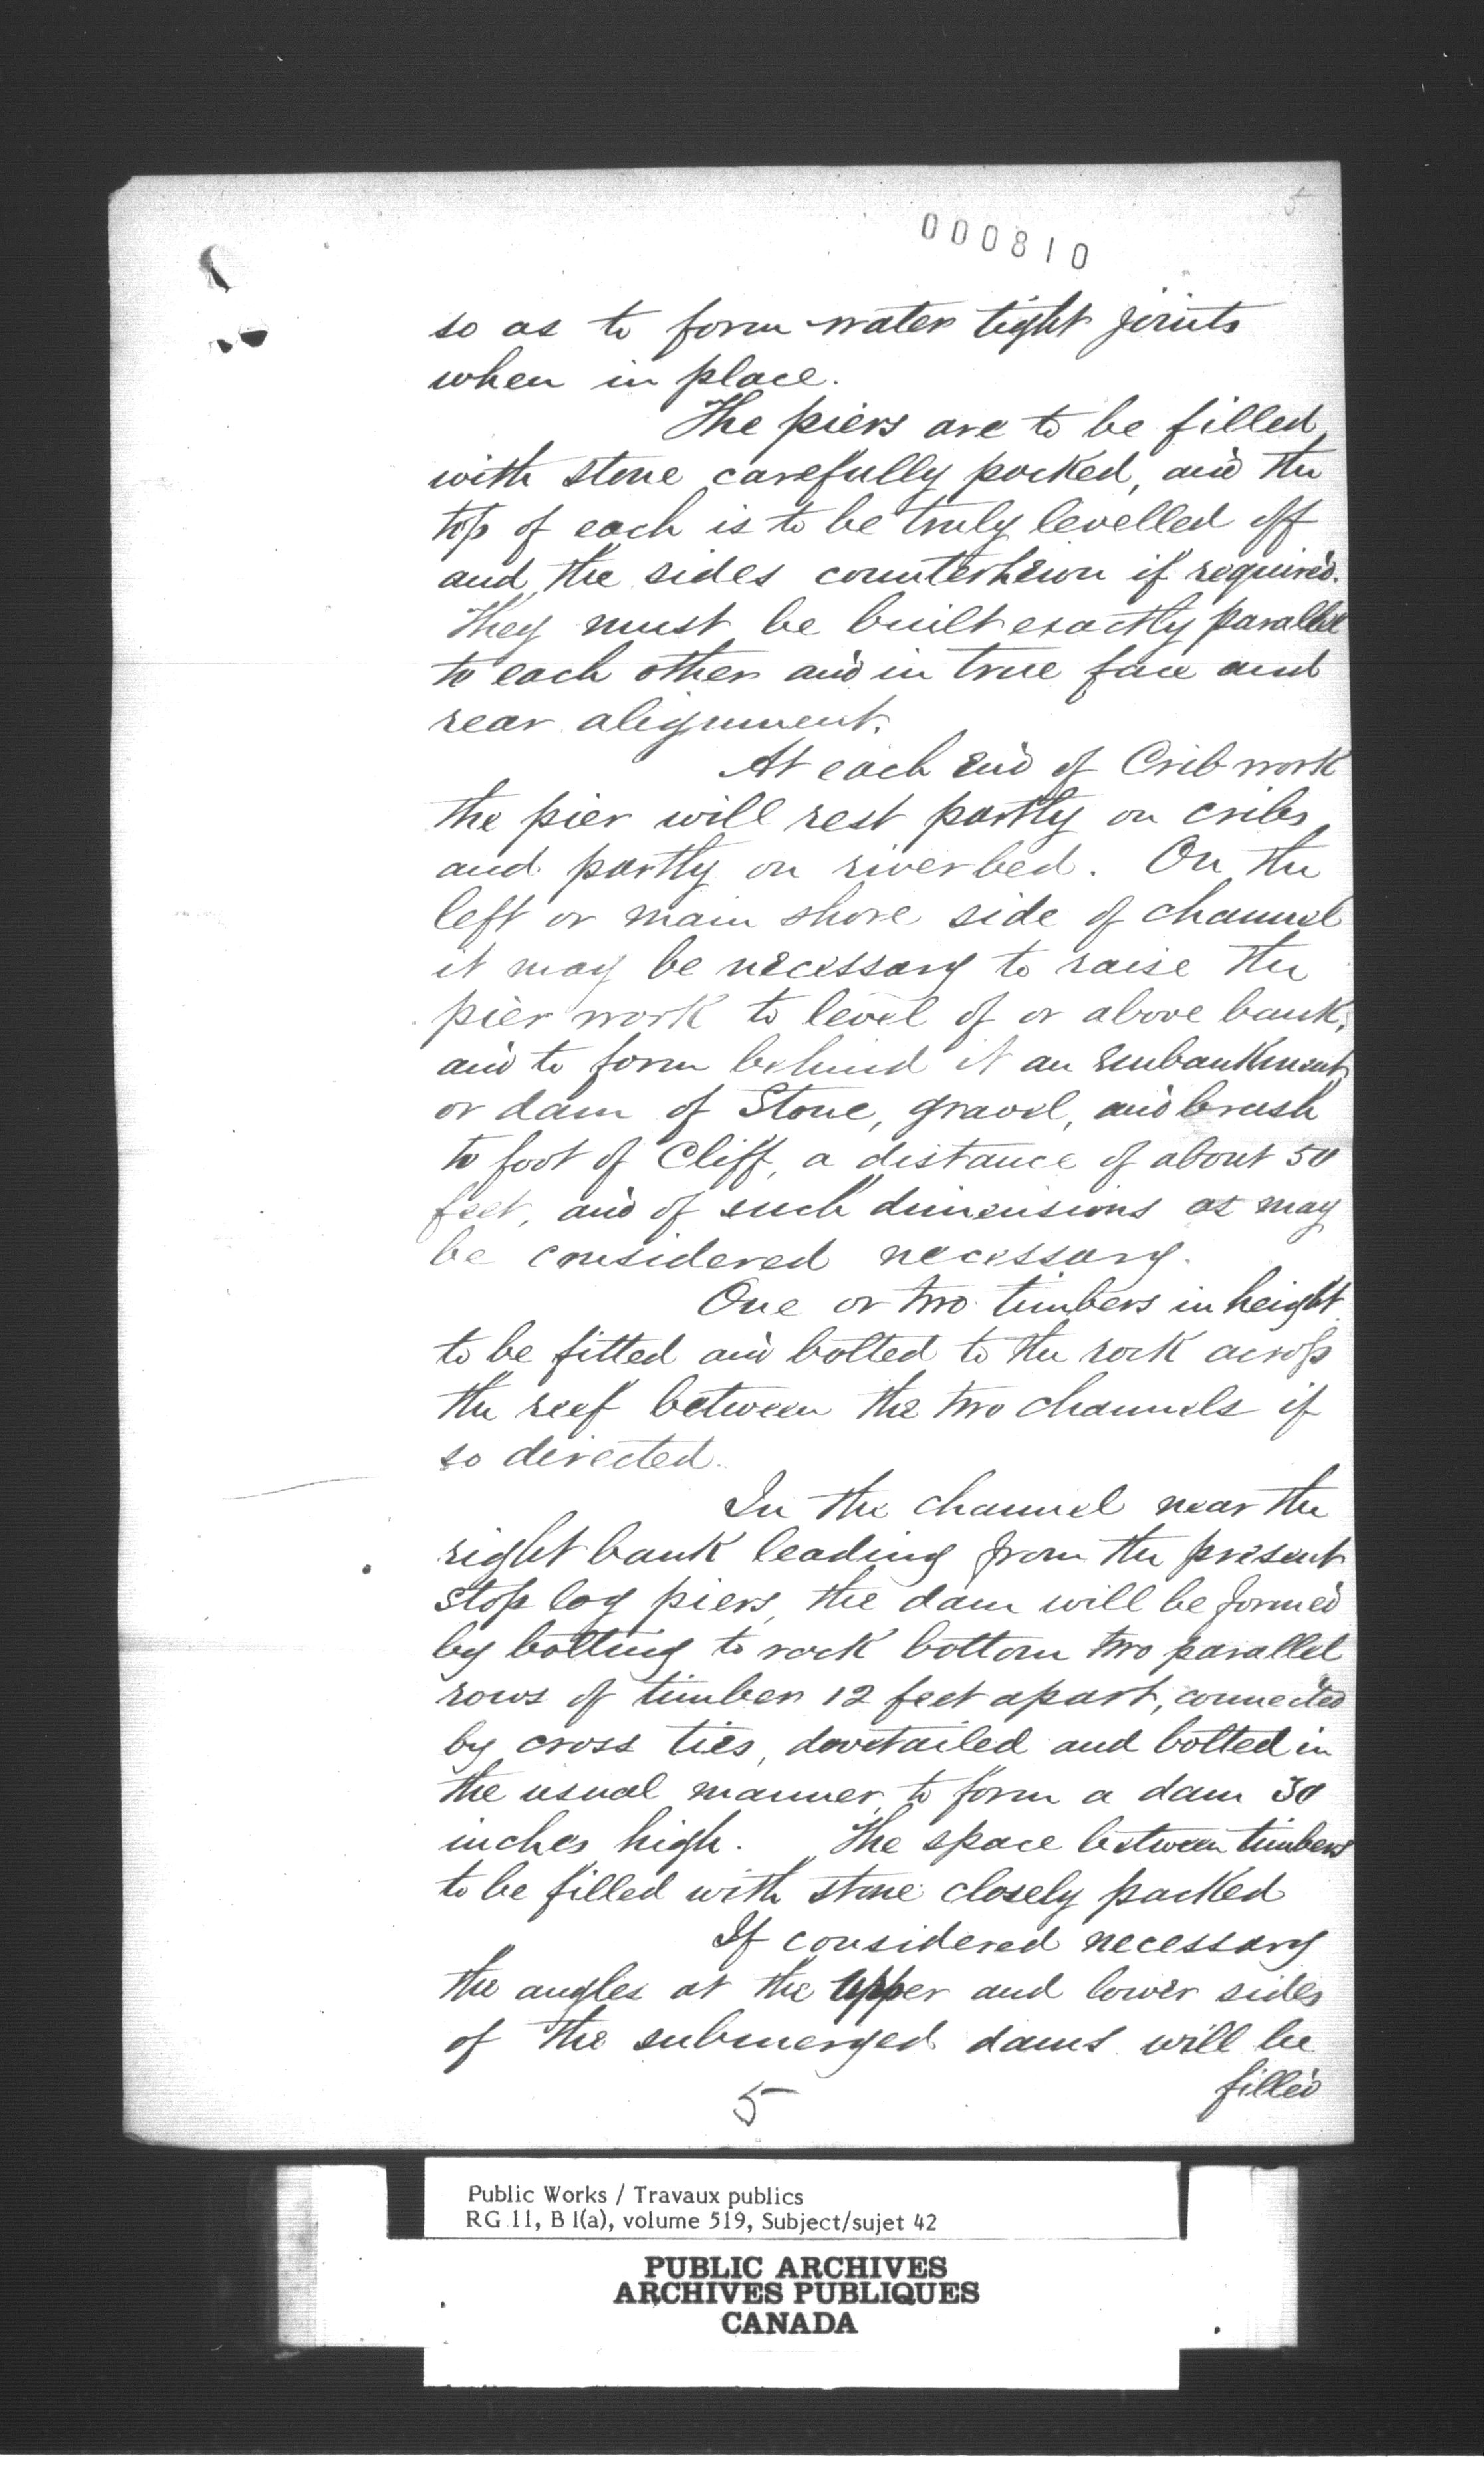 5
000810
so as to form water tight joints
when in place.
The piers are to be filled
with stone carefully packed, and the
top of each is to be truly levelled off
and the sides counterhewn if required.
They must be built exactly parallel
to each other and in true face and
rear alignment.
At each end of Crib work
the pier will rest partly on cribs
and partly on river bed. On the
left or main shore side of channel
it may be necessary to raise the
pier work to level of or above bank,
and to form behind it an embankment
or dam of Stone, gravel, and brush
to foot of Cliff, a distance of about 50
feet, and of such dimensions as may
be considered necessary.
One or two timbers in height
to be fitted and bolted to the rock across
the reef between the two channels if
so directed.
In the channel near the
right bank leading from the present
Stop log piers, the dam will be formed
by bolting to rock bottom two parallel
rows of timber 12 feet apart, connected
by cross ties, dovetailed and bolted in
the usual manner, to form a dam 30
inches high. The space between timbers
to be filled with stone closely packed
If considered necessary
the angles at the upper and lower sides
of the submerged dams will be
filled
5
Public Works / Travaux publics
RG 11, B 1(a), volume 519, Subject/sujet 42
PUBLIC ARCHIVES
ARCHIVES PUBLIQUES
CANADA